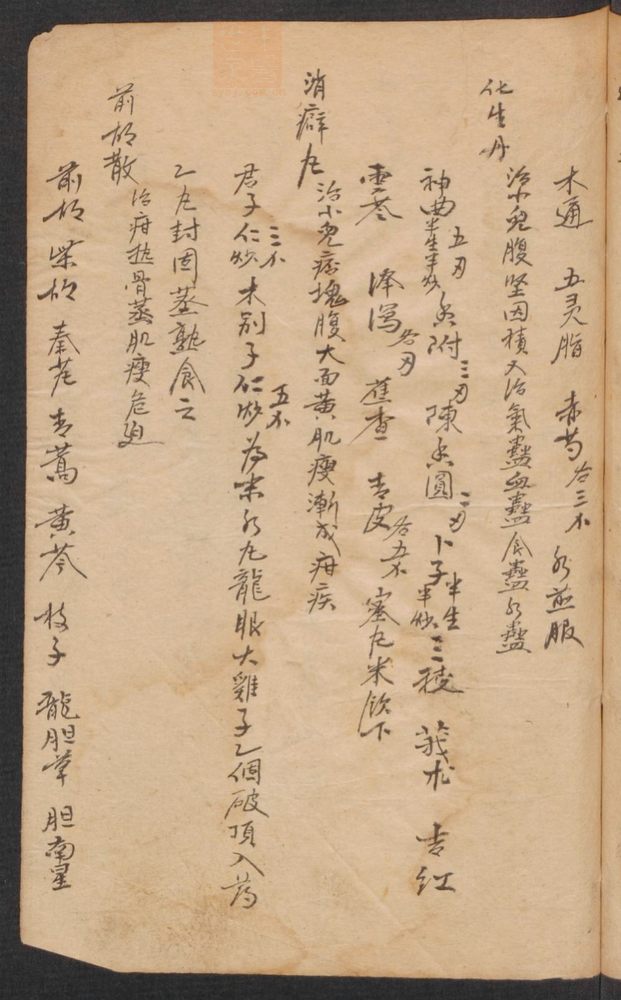 木通 五灵脂 赤芍各三不 水煎服
化生丹
治小児腹堅因積又治氣蠱血蠱食蠱水蠱
神曲半生半炒五刃 香附三刃 陳香圓二刃 卜子半生半炒 三稜 莪术 吉红
雲苓 泽瀉各刃 蕉查 青皮各五不 蜜丸米饮下
消癖丸
治小児痞塊腹大面黄肌瘦漸成疳疾
君子仁炒三不 木别子仁炒五不 為末水丸龍眼大雞子乙個破頂入药
乙丸封固蒸熟食之
前胡散
治疳热骨蒸肌瘦危廹
前胡 柴胡 秦艽 青蒿 黄芩 枝子 龍胆草 胆南星